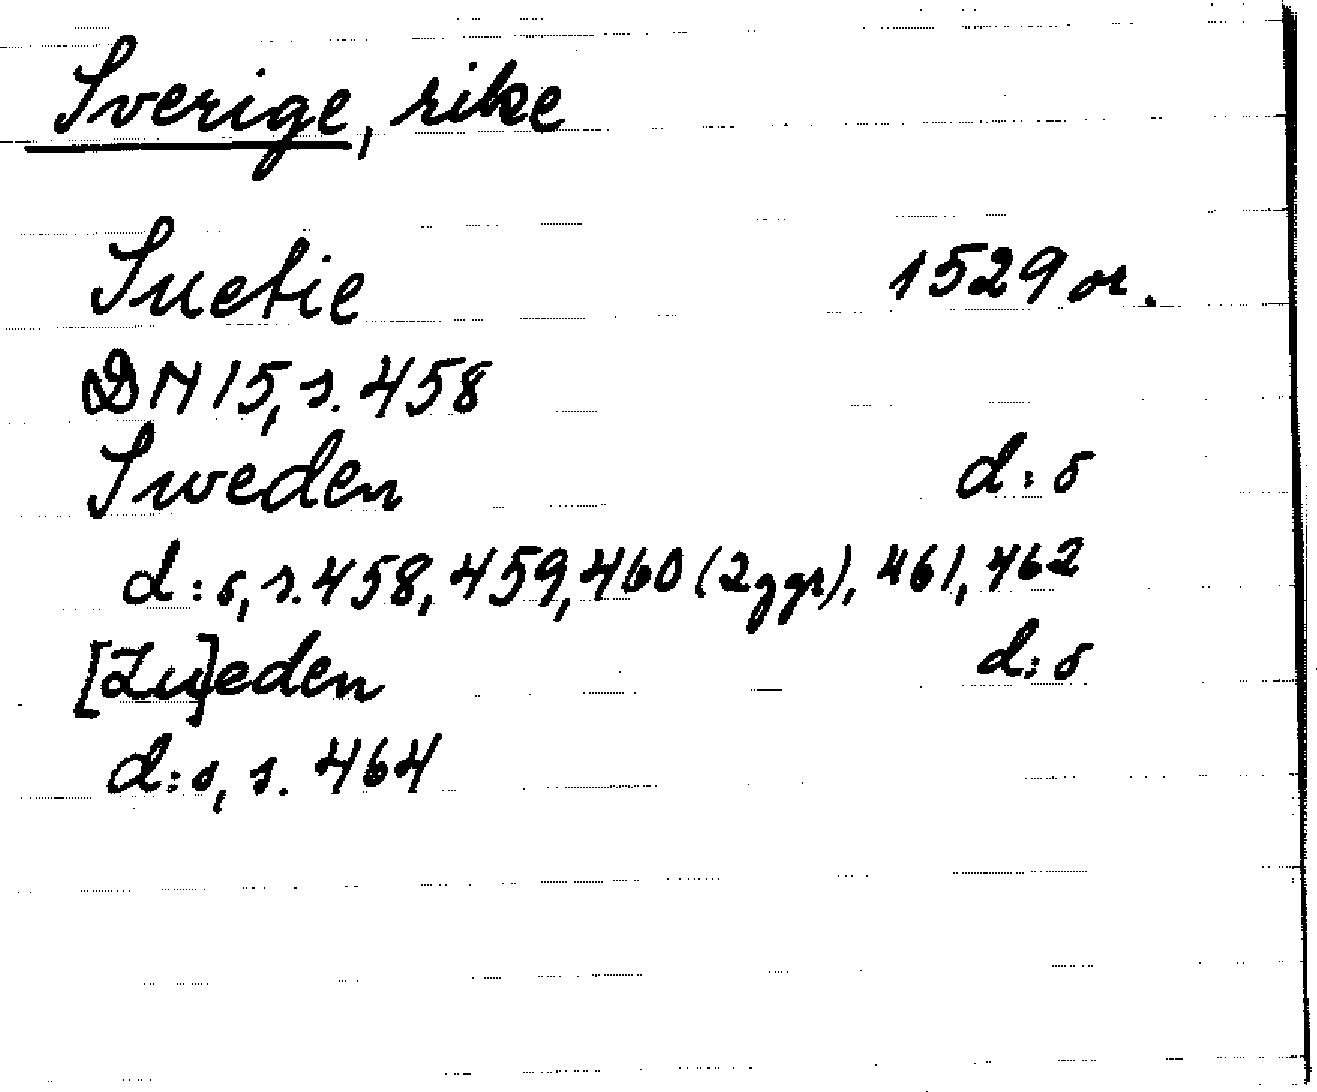 Sverige, rike
Suetie 1529 or.
DN 15, s. 458
Sweden d:o
d:o, s. 458, 459, 460 (2 ggr), 461, 462
[Zu]eden d:o
d:o, s. 464